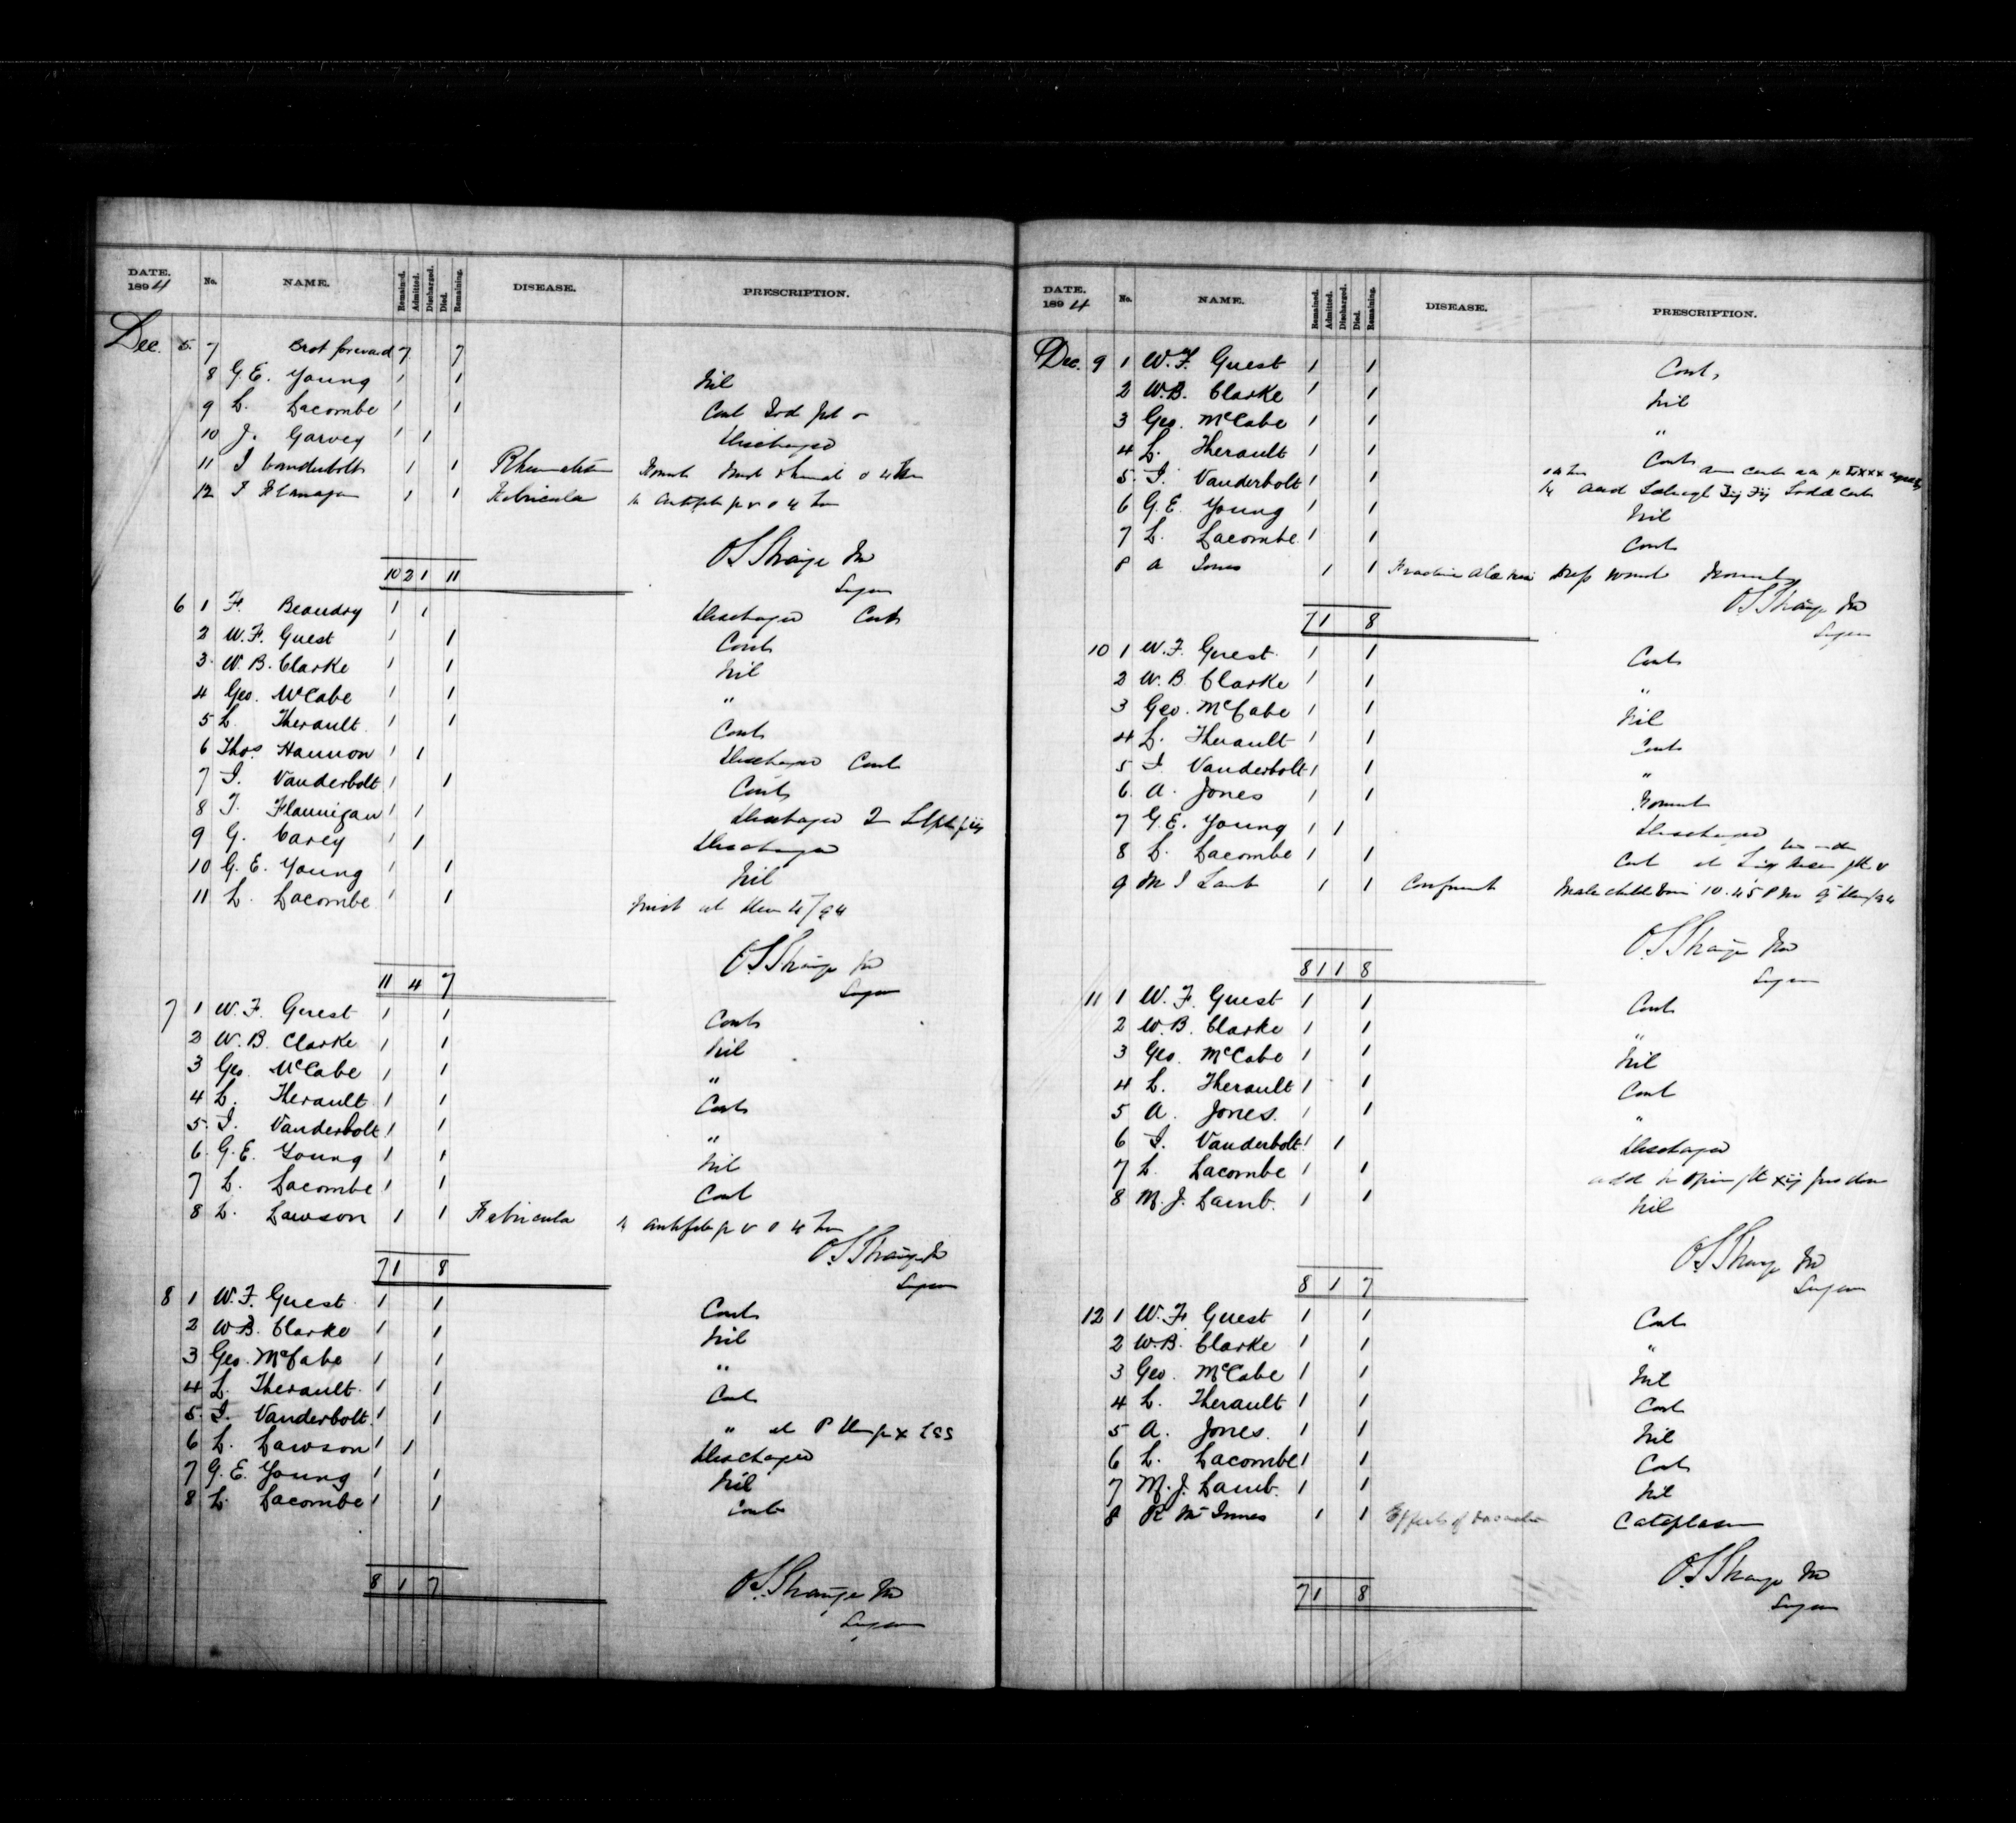 DATE. 1894 No. NAME. Remained. Admitted. Discharged. Died. Remaining. DISEASE. PRESCRIPTION.
Dec. 5. 7 Brot forward 7 7
8 G.E. Young 1 1 Nil
9 L. Lacombe 1 1 Cont
10 J. Garvey 1 1 Discharged
11 I Vanderbolt 1 1 Rheumatism
12 I Flanagan 1 1 Febricula
O S Strange MD
10 2 1 11 Surgeon
6 1 F. Beaudry 1 1 Discharged Cont
2 W.F. Guest 1 1 Cont
3. W.B. Clarke 1 1 Nil
4 Geo. McCabe 1 1 "
5 L. Therault 1 1 Cont
6 Thos. Hannon 1 1 Discharged Cont
7 I. Vanderbolt 1 1 Cont
8 I. Flannigan 1 1 Discharged
9 G. Carey 1 1 Discharged
10 G.E. Young 1 1 Nil
11 L. Lacombe 1 1
O S Strange MD
11 4 7 Surgeon
7 1 W.F. Guest 1 1 Cont
2 W.B. Clarke 1 1 Nil
3 Geo. McCabe 1 1 "
4 L. Therault 1 1 Cont
5. I. Vanderbolt 1 1 "
6. G.E. Young 1 1 Nil
7 L. Lacombe 1 1 Cont
8 L. Lawson 1 1 Febricula
O S Strange MD
7 1 8 Surgeon
8 1 W.F. Guest 1 1 Cont
2 W.B. Clarke 1 1 Nil
3 Geo. McCabe 1 1 "
4 L. Therault 1 1 Cont
5. I. Vanderbolt 1 1 "
6 L. Lawson 1 1 Discharged
7 G.E. Young 1 1 Nil
8 L. Lacombe 1 1 Cont
8 1 7 O S Strange MD
Surgeon
DATE. 1894 No. NAME. Remained. Admitted. Discharged. Died. Remaining. DISEASE. PRESCRIPTION.
Dec. 9 1 W.F. Guest 1 1 Cont
2 W.B. Clarke 1 1 Nil
3 Geo. McCabe 1 1 "
4 L. Therault 1 1 Cont
5. I. Vanderbolt 1 1
6 G.E. Young 1 1 Nil
7 L. Lacombe 1 1 Cont
8 A Jones 1 1 Fracture
O S Strange MD
7 1 8 Surgeon
10 1 W.F. Guest 1 1 Cont
2 W.B. Clarke 1 1 "
3 Geo. McCabe 1 1 Nil
4 L. Therault 1 1 Cont
5 I Vanderbolt 1 1 "
6. A. Jones 1 1
7 G.E. Young 1 1 Discharged
8 L. Lacombe 1 1 Cont
9 M J Lamb 1 1 Male child born 10.45 PM
O S Strange MD
8 1 1 8 Surgeon
11 1 W.F. Guest 1 1 Cont
2 W.B. Clarke 1 1 "
3 Geo. McCabe 1 1 Nil
4 L. Therault 1 1 Cont
5 A. Jones. 1 1 "
6 I. Vanderbolt 1 1 Discharged
7 L. Lacombe 1 1 add
8 M.J. Lamb. 1 1 Nil
O S Strange MD
8 1 7 Surgeon
12 1 W.F. Guest 1 1 Cont
2 W.B. Clarke 1 1 "
3 Geo. McCabe 1 1 Nil
4 L. Therault 1 1 Cont
5 A. Jones. 1 1 Nil
6 L. Lacombe 1 1 Cont
7 M.J. Lamb. 1 1 Nil
8 R McInnes 1 1 Effects of Cataplasm
O S Strange MD
7 1 8 Surgeon